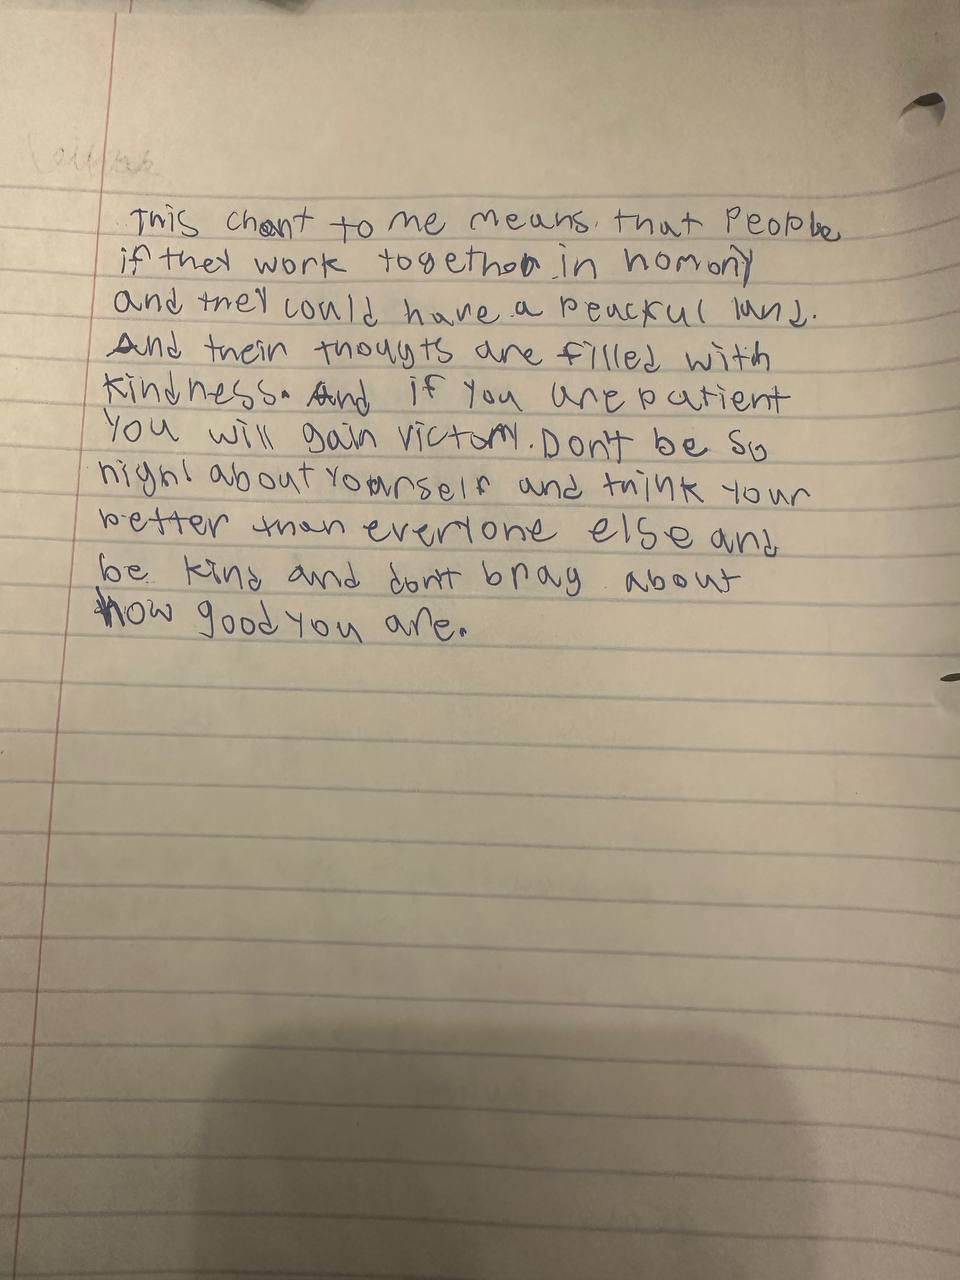 This chant to me means that people
if they work together in homony
and they could have a peacful land.
And their thoughts are filled with
kindness. And if you are patient
you will gain victory. Don't be so
high about yourself and think your
better than everyone else and
be kind and don't brag about
how good you are.